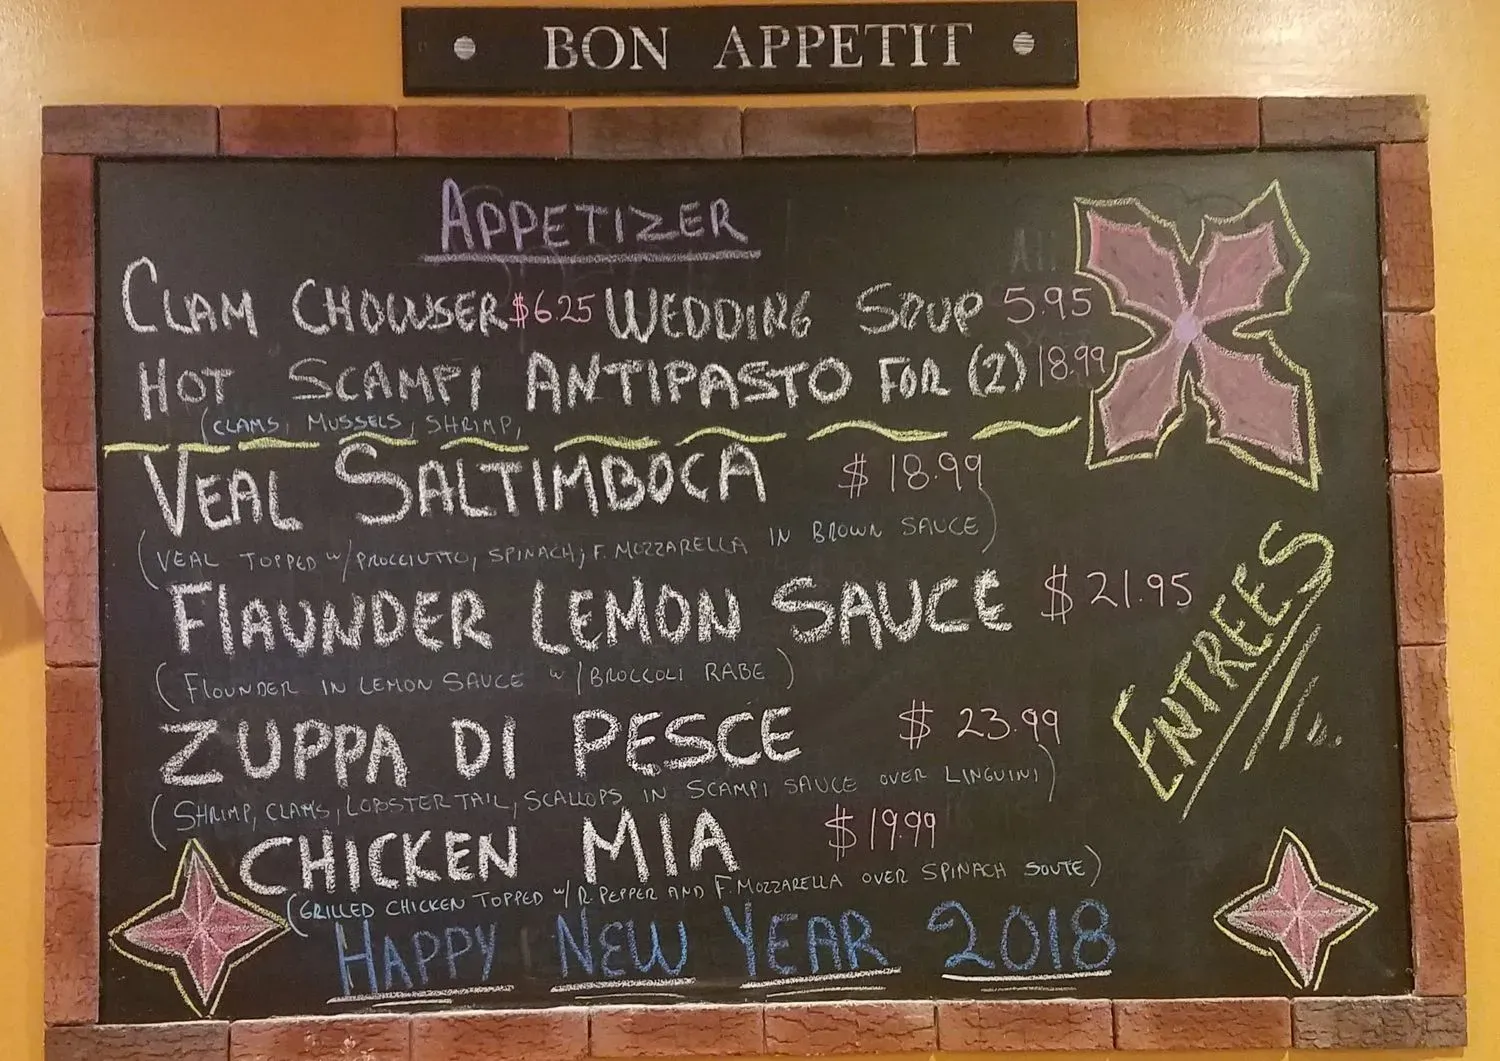 • BON APPETIT •
APPETIZER
CLAM CHOWSER $6.25 WEDDING SOUP 5.95
HOT SCAMPI ANTIPASTO FOR (2) 18.99
(CLAMS, MUSSELS, SHRIMP,
VEAL SALTIMBOCA $18.99
(VEAL TOPPED w/PROCCIUTTO, SPINACH, F. MOZZARELLA IN BROWN SAUCE)
FlAUNDER LEMON SAUCE $21.95
(FLOUNDER IN LEMON SAUCE w/BROCCOLI RABE)
ZUPPA DI PESCE $23.99
(SHRIMP, CLAMS, LOBSTER TAIL, SCALLOPS IN SCAMPI SAUCE OVER LINGUINI)
CHICKEN MIA $19.99
(GRILLED CHICKEN TOPPED w/R. PEPPER AND F. MOZZARELLA OVER SPINACH SOUTE)
ENTREES
HAPPY NEW YEAR 2018